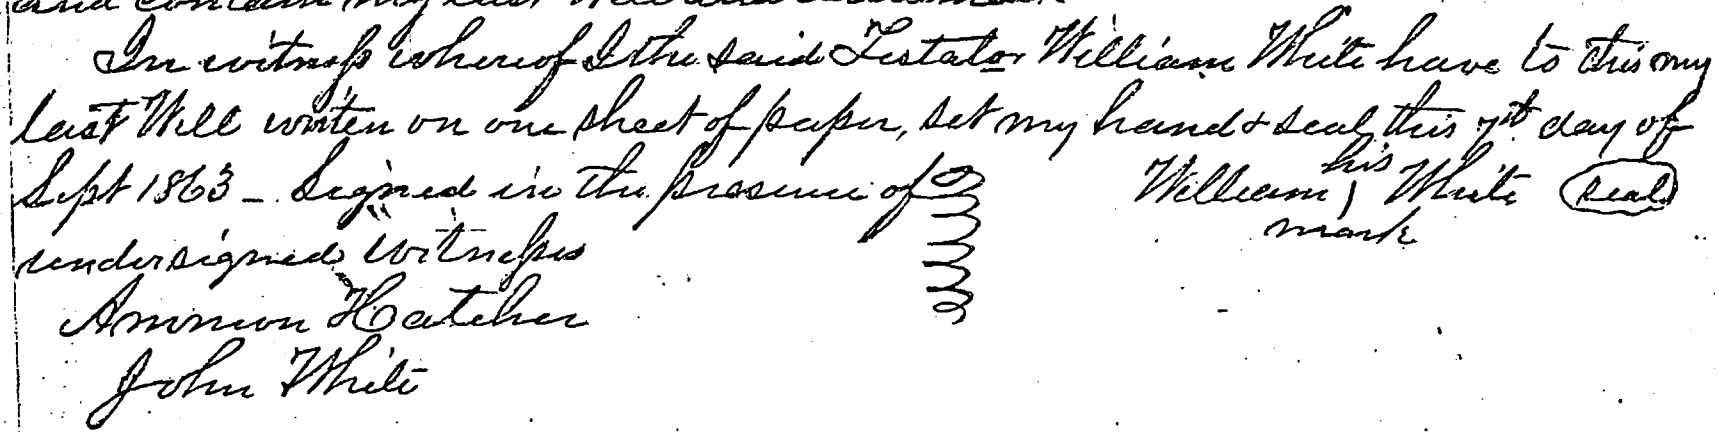 and contain my last Will and
In witness whereof I the said Testator William White have to this my
last Will writen on one sheet of paper, set my hand & seal, this 7th day of
Sept 1863 - Signed in the presence of
his
William White seal
mark
undersigned witnesses
Ammon Hatcher
John White